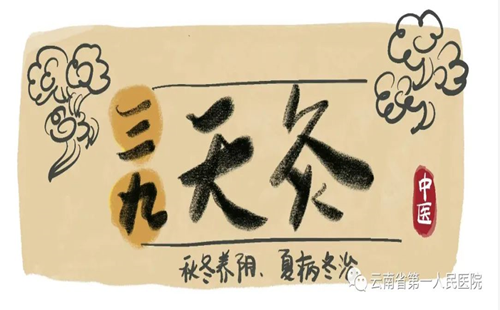 三九
天灸
中医
秋冬养阴、夏病冬治
云南省第一人民医院